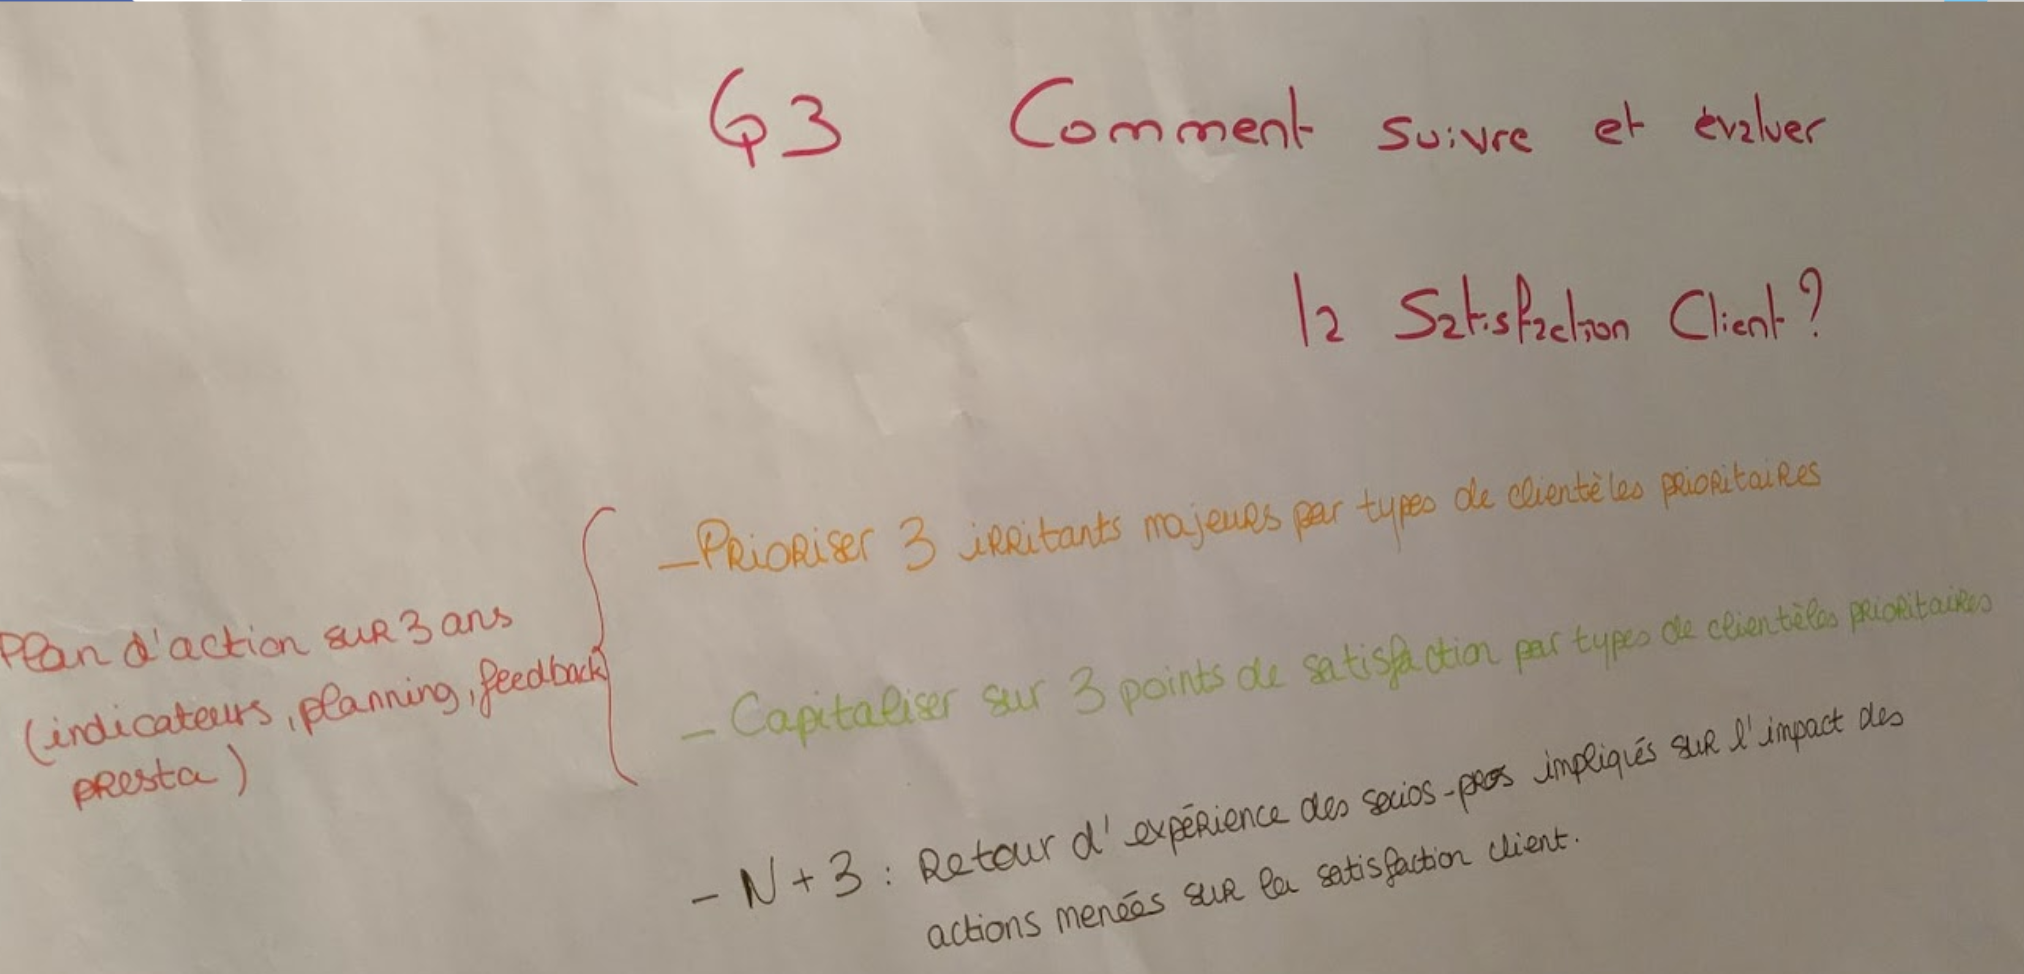 Q3 Comment suivre et évaluer
la Satisfaction Client ?
- Prioriser 3 irritants majeurs par types de clientèles prioritaires
Plan d'action sur 3 ans
(indicateurs, planning, feedback
presta)
- Capitaliser sur 3 points de satisfaction par types de clientèles prioritaires
- N + 3 : Retour d'expérience des socios-pros impliqués sur l'impact des
actions menées sur la satisfaction client.